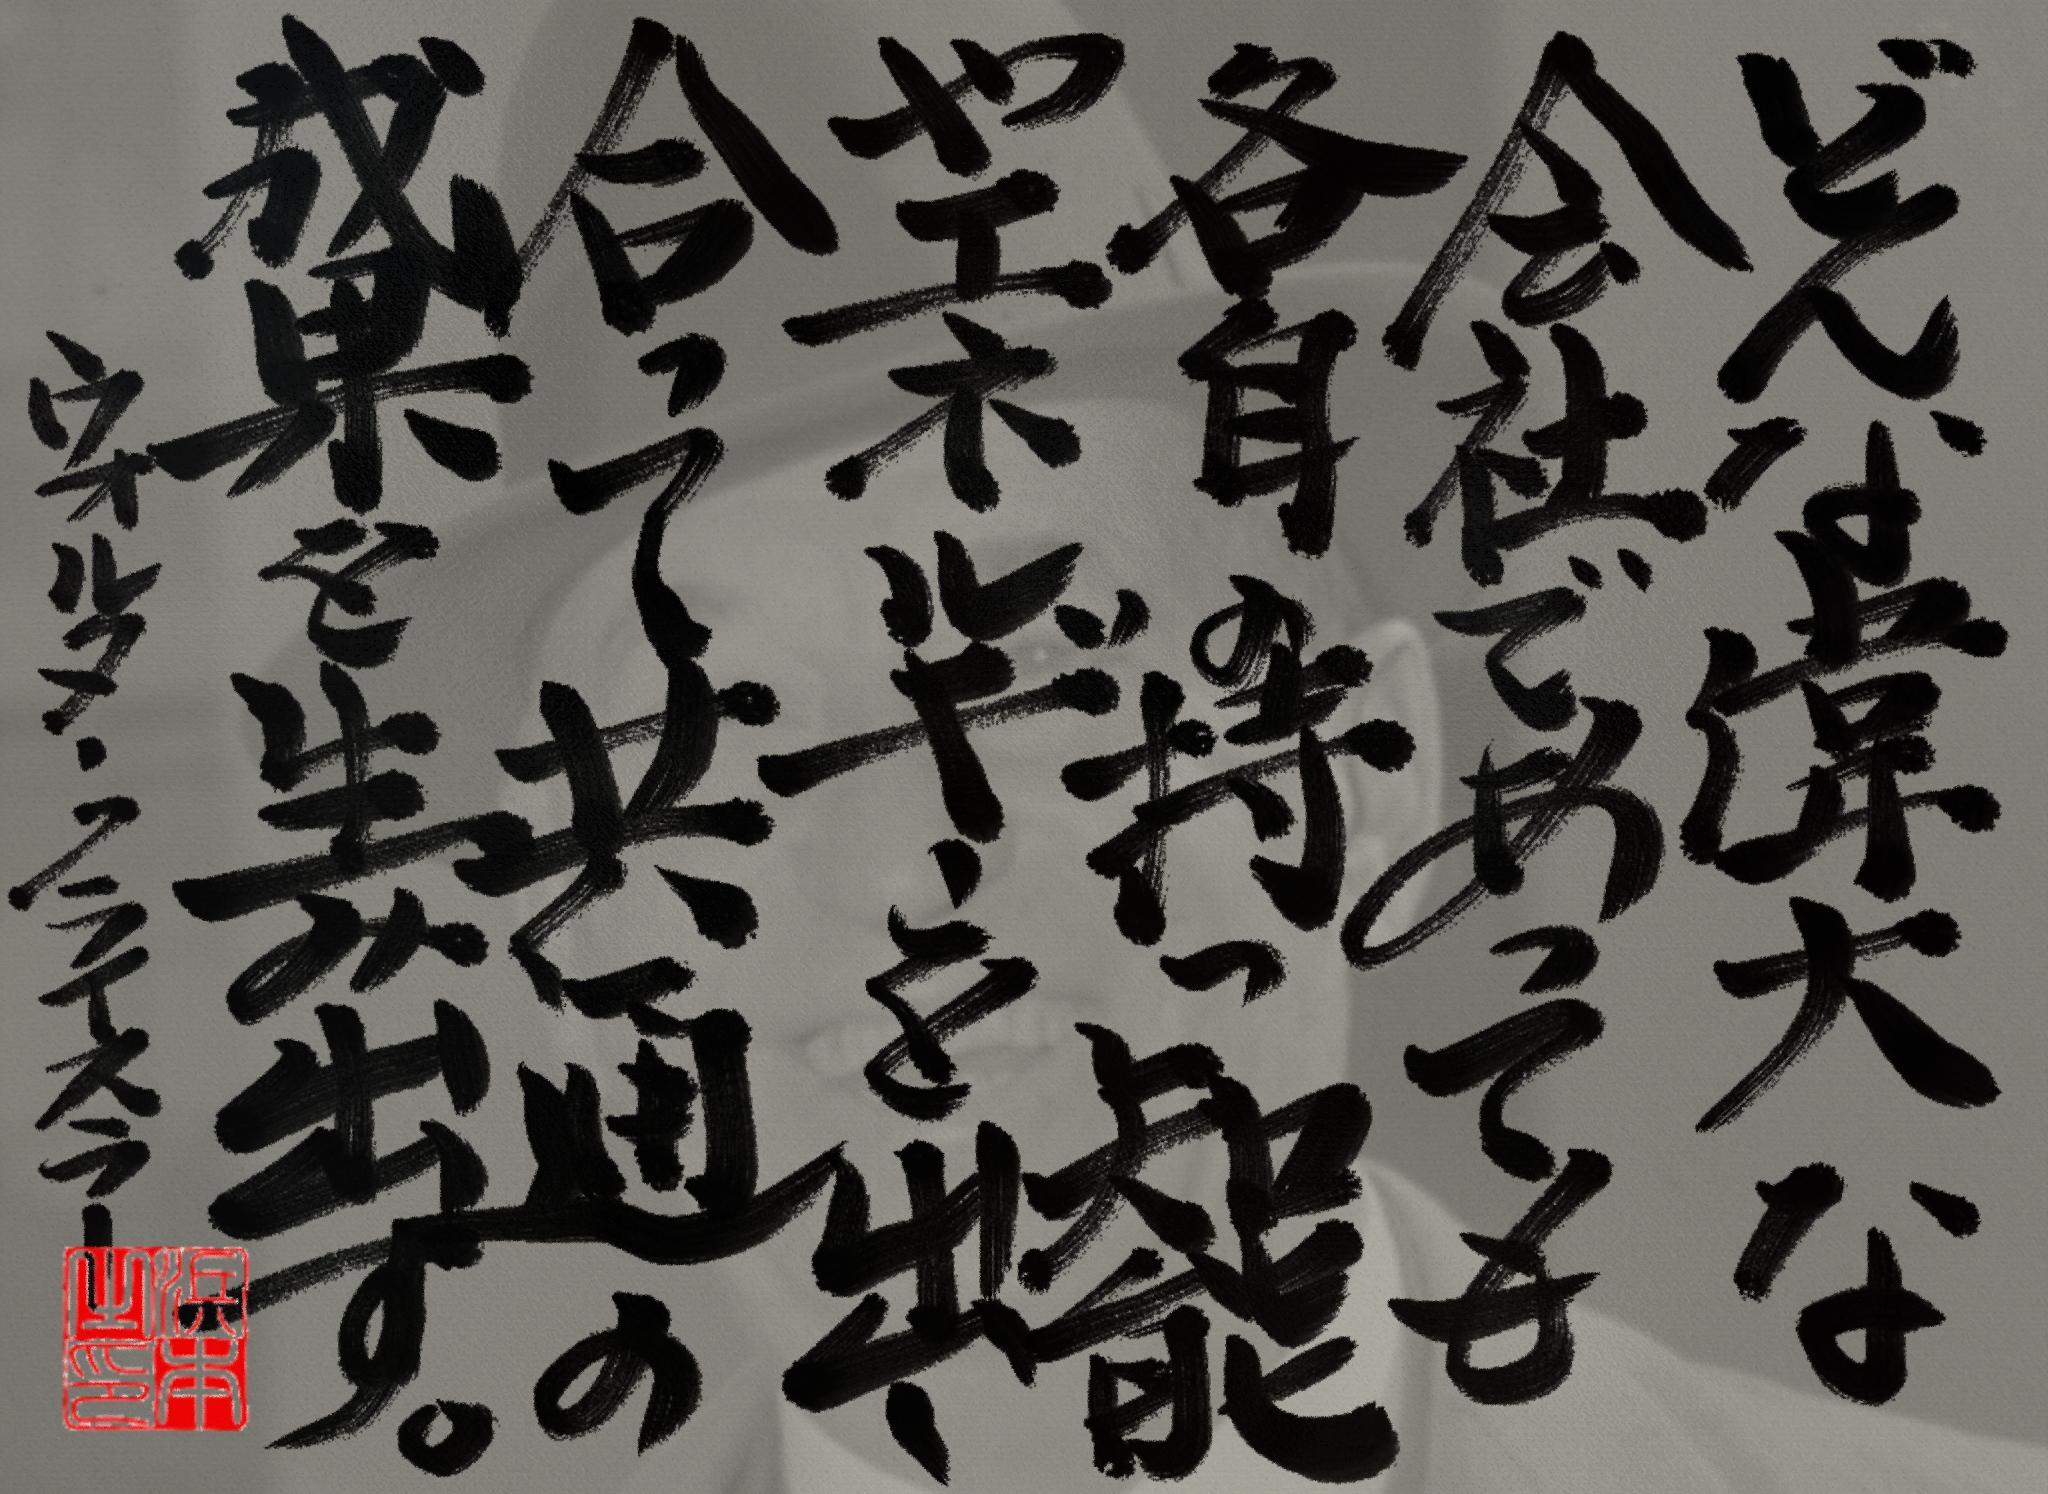 どんな偉大な
会社であっても
各自の持つ才能
やエネルギーを出し
合って共通の
成果を生み出す。
ウォルタ・クライスラー
浜本之印